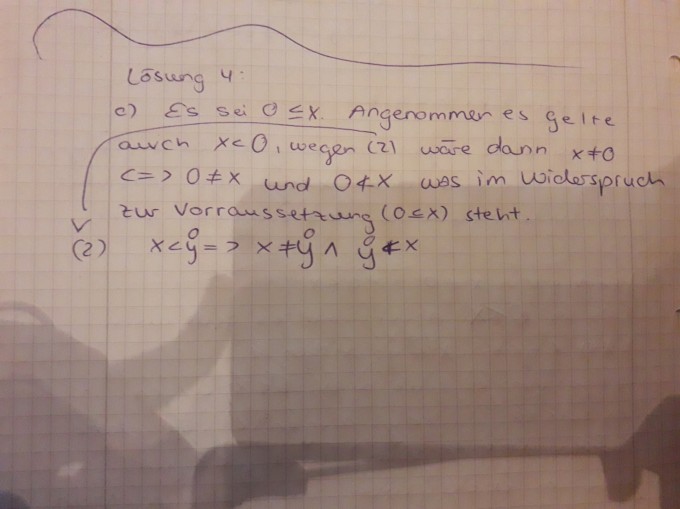 Lösung 4:
c) Es sei 0 ≤ x. Angenommen es gelte
auch x < 0, wegen (2) wäre dann x ≠ 0
<=> 0 ≠ x und 0 ≮ x was im Widerspruch
zur Vorraussetzung (0 ≤ x) steht.
(2) x < ẙ => x ≠ ẙ ∧ ẙ ≮ x